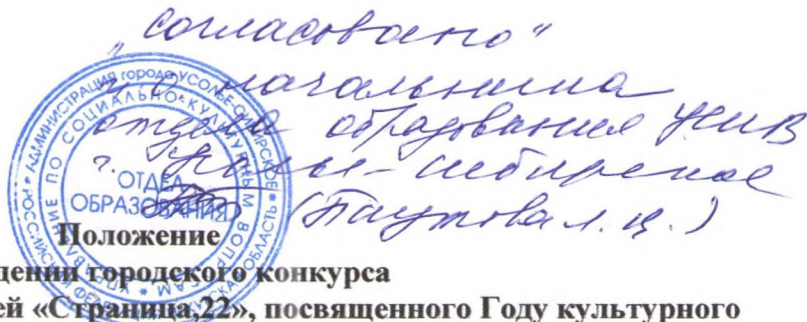 „согласовано"
начальника
отдела образования УСКВ
г. Усолье-Сибирское
(Паутова Л. Ц.)
АДМИНИСТРАЦИЯ города УСОЛЬЕ-СИБИРСКОЕ
УПРАВЛЕНИЕ ПО СОЦИАЛЬНО-КУЛЬТУРНЫМ ВОПРОСАМ
ОТДЕЛ
ОБРАЗОВАНИЯ
Положение
дении городского конкурса
ей «Страница,22», посвященного Году культурного